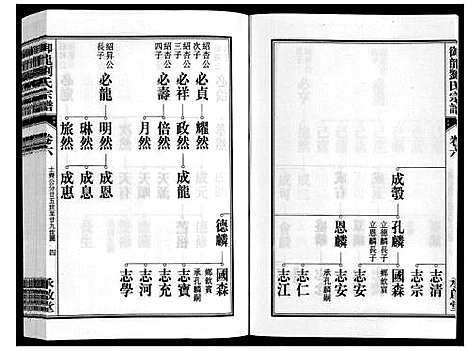 御龍劉氏宗譜
卷六
承啟堂
成勠
孔麟
立德麟長子
立恩麟長子
恩麟
國森
鄉飲賓
志清
志宗
志安
志安
承孔麟嗣
志仁
志江
紹杏公次子
必貞
耀然
紹杏公三子
必祥
政然
成龍
德麟
國森
鄉飲賓
志寶
承孔麟嗣
志充
志河
志學
紹杏公四子
必壽
倍然
月然
紹昇公長子
必龍
明然
成恩
琳然
成息
旅然
成惠
御龍劉氏宗譜
卷六
四
承啟堂